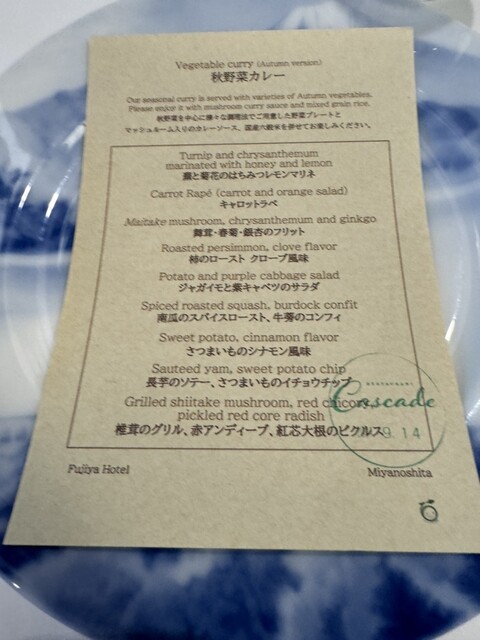 Vegetable curry (Autumn version)
秋野菜カレー
Our seasonal curry is served with varieties of Autumn vegetables.
Please enjoy it with mushroom curry sauce and mixed grain rice.
秋野菜を中心に様々な調理法でご用意した野菜プレートと
マッシュルーム入りのカレーソース、国産六穀米を併せてお楽しみください。
Turnip and chrysanthemum
marinated with honey and lemon
蕪と菊花のはちみつレモンマリネ
Carrot Rapé (carrot and orange salad)
キャロットラペ
Maitake mushroom, chrysanthemum and ginkgo
舞茸・春菊・銀杏のフリット
Roasted persimmon, clove flavor
柿のロースト クローブ風味
Potato and purple cabbage salad
ジャガイモと紫キャベツのサラダ
Spiced roasted squash, burdock confit
南瓜のスパイスロースト、牛蒡のコンフィ
Sweet potato, cinnamon flavor
さつまいものシナモン風味
Sauteed yam, sweet potato chip
長芋のソテー、さつまいものイチョウチップ
Grilled shiitake mushroom, red chicory,
pickled red core radish
椎茸のグリル、赤アンディーブ、紅芯大根のピクルス
RESTAURANT
Cascade
9. 14
Fujiya Hotel
Miyanoshita